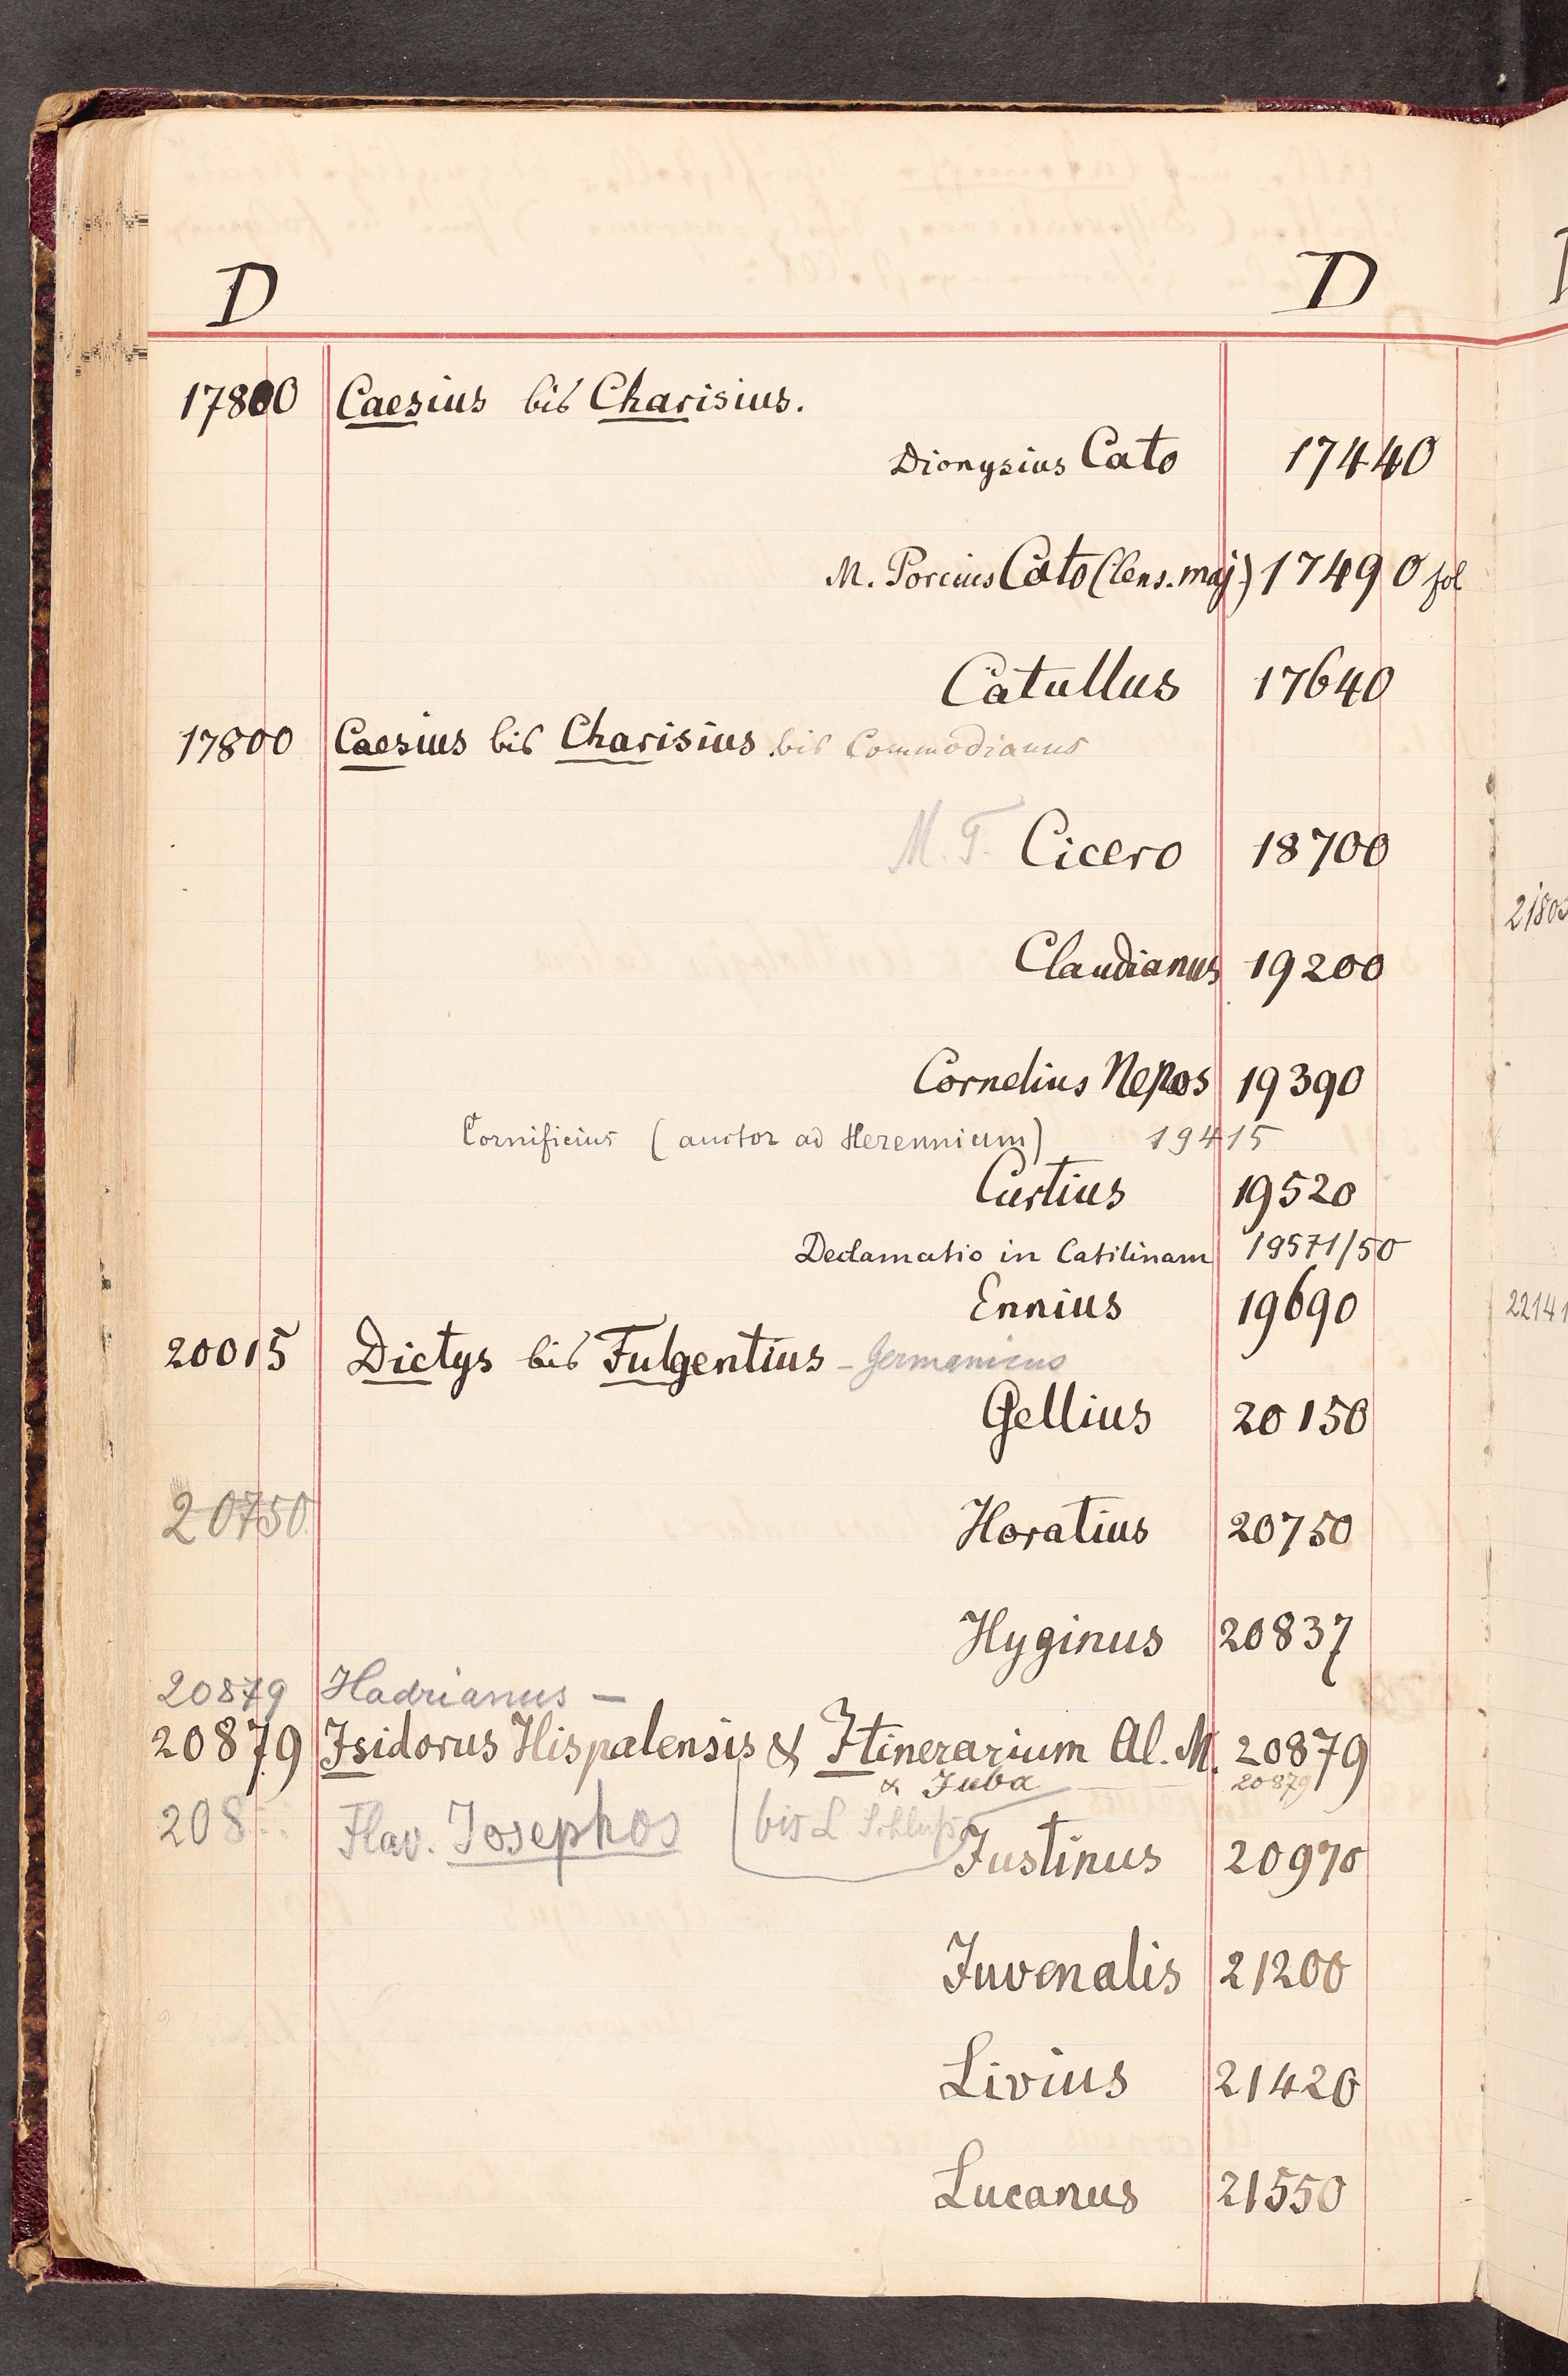 D D
17800 Caesius bis Charisius.
Dionysius Cato 17440
M. Porcius Cato (Cens. maj) 17490 fol
Catullus 17640
17800 Caesius bis Charisius. bis Commodianus
M. T. Cicero 18700
Claudianus 19200
Cornelius Nepos 19390
Cornificius (auctor ad Herennium) 19415
Curtius 19520
Declamatio in Catilinam 19571/50
Ennius 19690
20015 Dictys bis Fulgentius - Germanicus
Gellius 20150
20750 Horatius 20750
Hyginus 20837
20879 Hadrianus —
20879 Isidorus Hispalensis & Itinerarium Al. M. 20879
& Juba 20879
208 Flav. Josephos bis L. Schluß
Justinus 20970
Juvenalis 21200
Livius 21420
Lucanus 21550
2180
2214